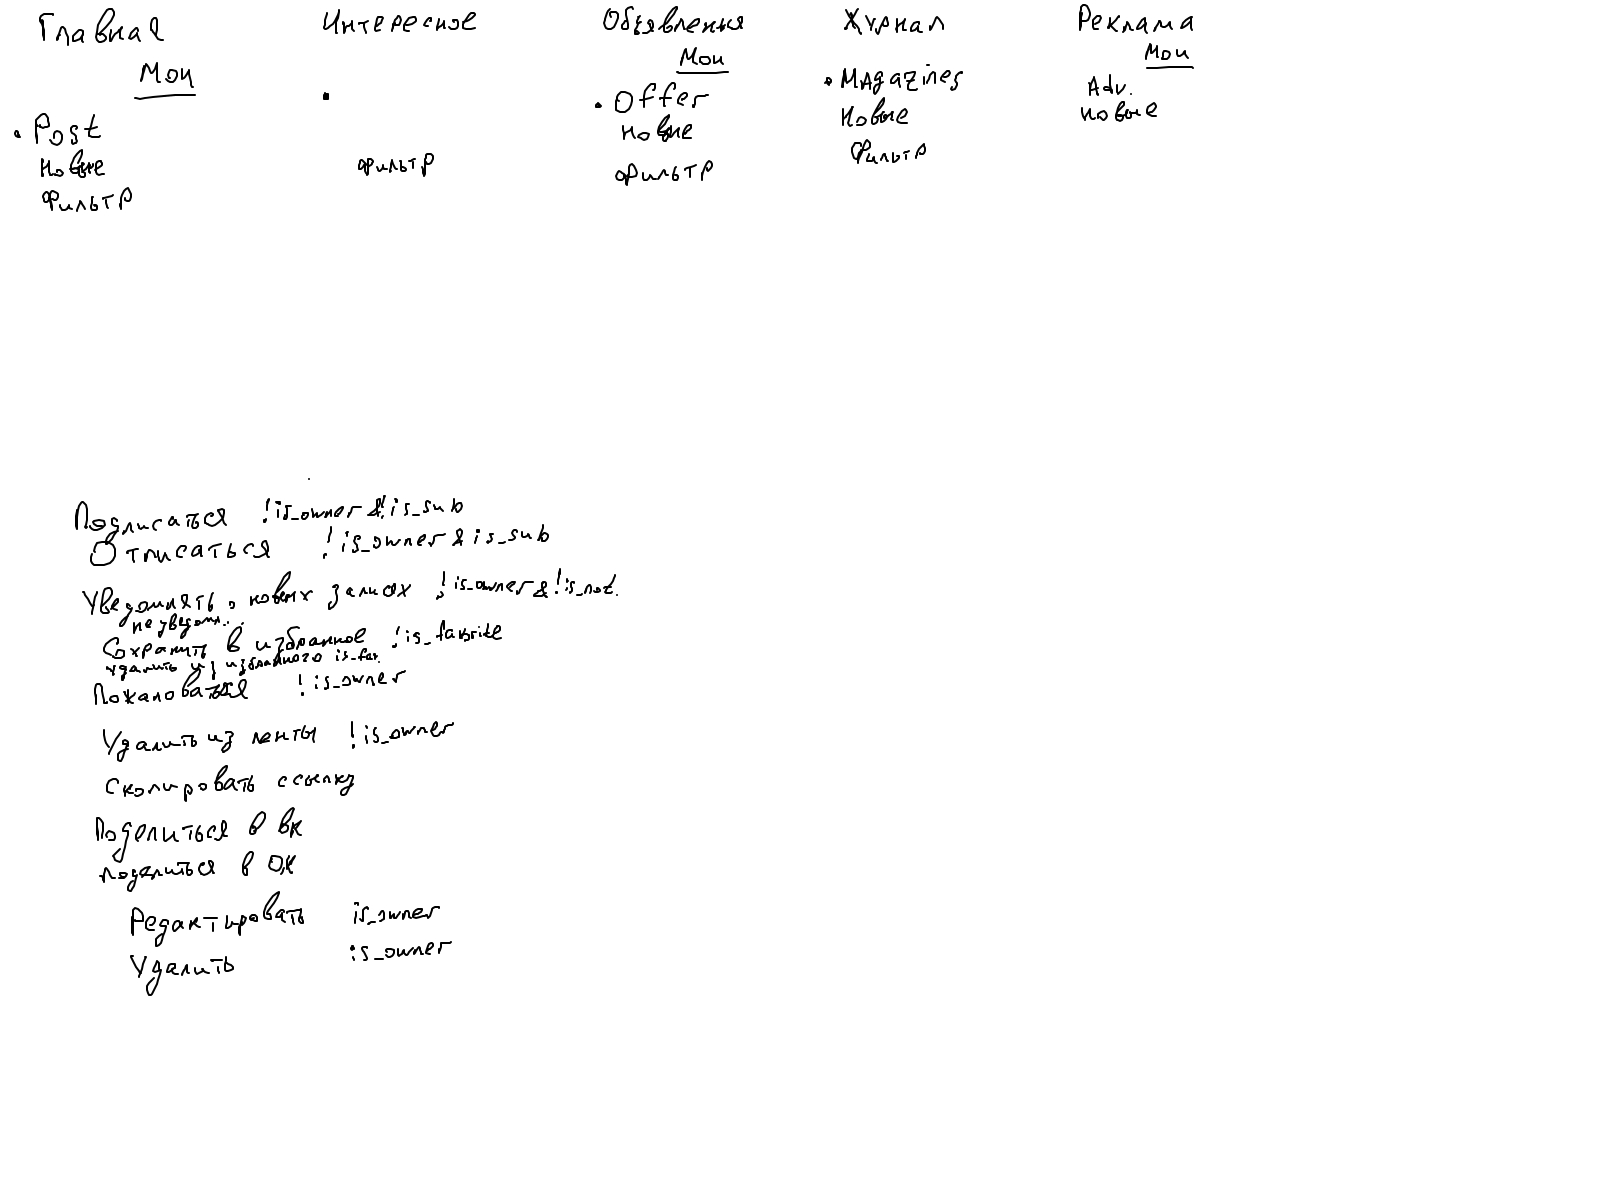 Главная
Мои
• Post
Новые
Фильтр
Интересное
•
Фильтр
Объявления
Мои
• Offer
Новые
Фильтр
Журнал
• Magazines
Новые
Фильтр
Реклама
Мои
Adv.
Новые
Подписаться !is_owner & !is_sub
Отписаться !is_owner & is_sub
Уведомлять о новых записях !is_owner & !is_not.
не уведомл...
Сохранить в избранное !is_favorite
удалить из избранного is_fav.
Пожаловаться !is_owner
Удалить из ленты !is_owner
Скопировать ссылку
Поделиться в вк
Поделиться в ОК
Редактировать is_owner
Удалить is_owner